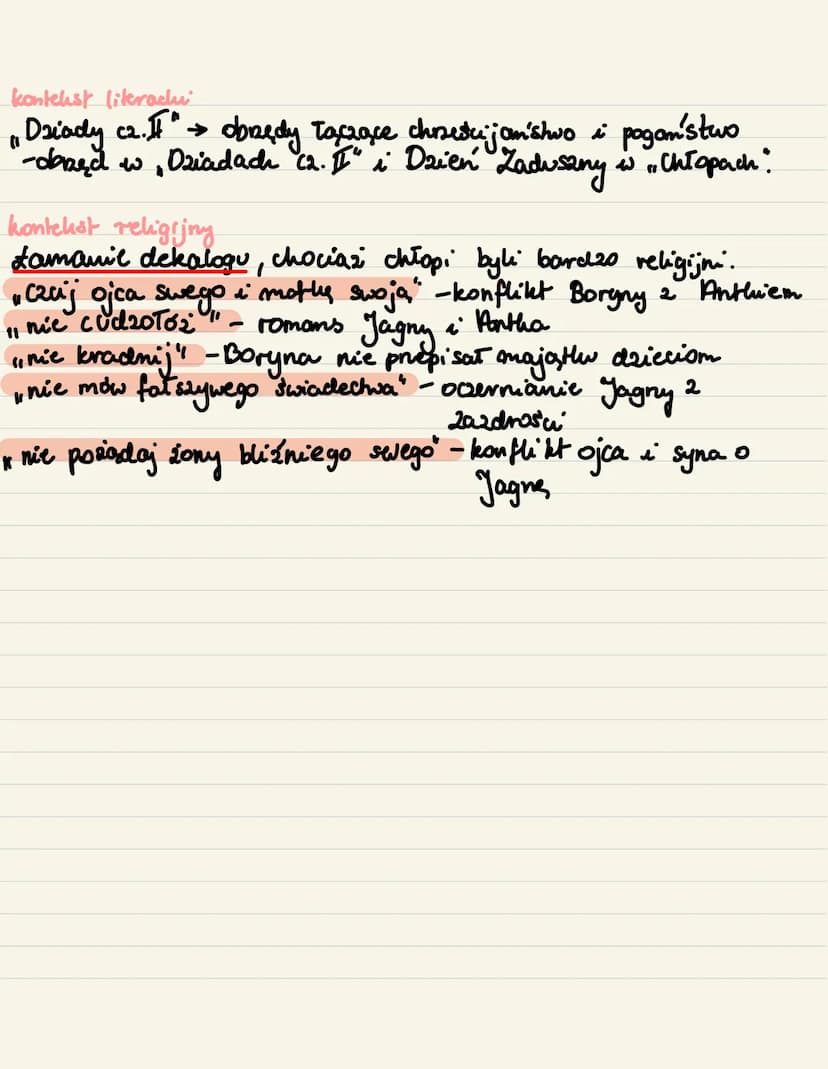 kontekst literacki
„Dziady cz. II" → obrzędy łączące chrześcijaństwo i pogaństwo
-obrzęd w „Dziadach cz. II" i Dzień Zaduszny w „Chłopach".
kontekst religijny
Łamanie dekalogu, chociaż chłopi byli bardzo religijni.
„Czcij ojca swego i matkę swoją" -konflikt Boryny z Antkiem
„nie cudzołóż" - romans Jagny i Antka
„nie kradnij" - Boryna nie przepisał majątku dzieciom
„nie mów fałszywego świadectwa" - oczernianie Jagny z
zazdrości
„nie pożądaj żony bliźniego swego" - konflikt ojca i syna o
Jagnę